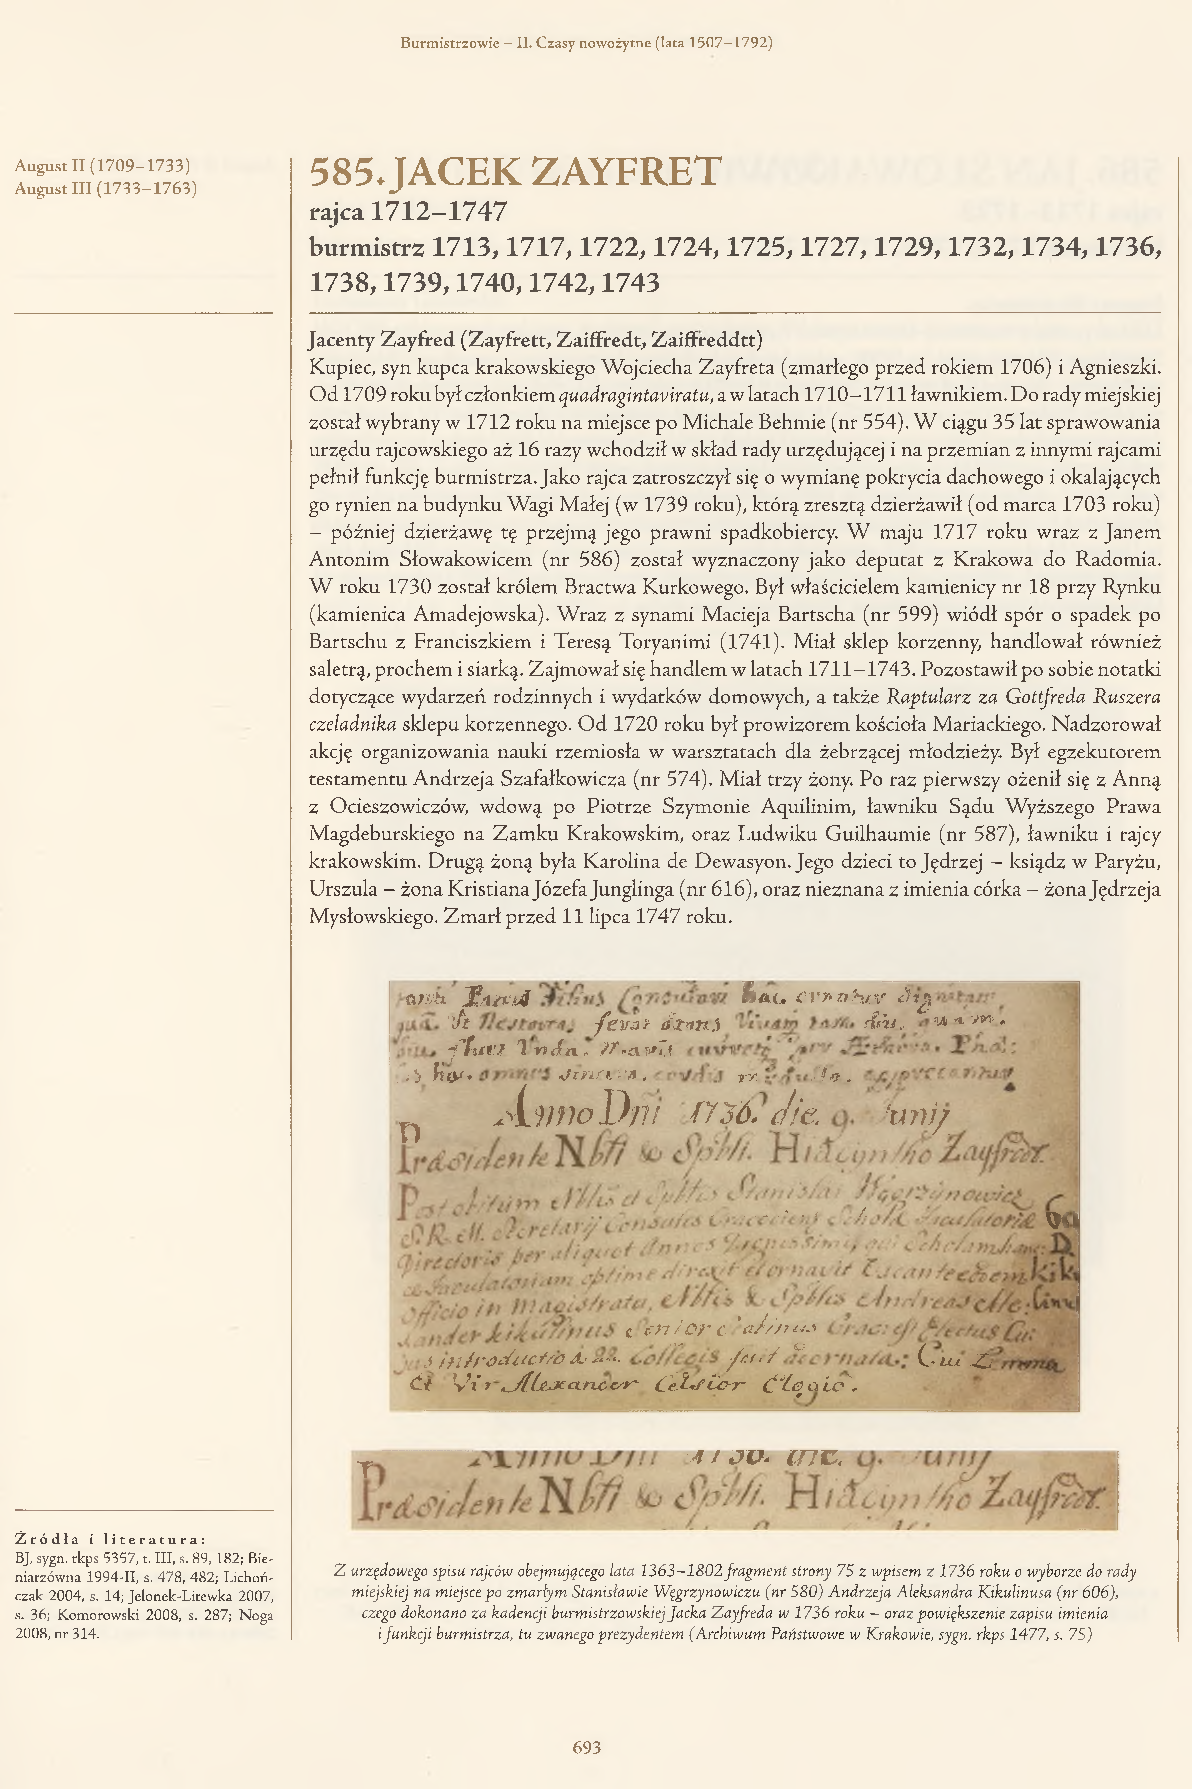 Burmistrzowie – II. Czasy nowożytne (lata 1507–1792)
August II (1709–1733)
August III (1733–1763)
585. JACEK ZAYFRET
rajca 1712–1747
burmistrz 1713, 1717, 1722, 1724, 1725, 1727, 1729, 1732, 1734, 1736,
1738, 1739, 1740, 1742, 1743
Jacenty Zayfred (Zayfrett, Zaiffredt, Zaiffreddtt)
Kupiec, syn kupca krakowskiego Wojciecha Zayfreta (zmarłego przed rokiem 1706) i Agnieszki.
Od 1709 roku był członkiem quadragintaviratu, a w latach 1710–1711 ławnikiem. Do rady miejskiej
został wybrany w 1712 roku na miejsce po Michale Behmie (nr 554). W ciągu 35 lat sprawowania
urzędu rajcowskiego aż 16 razy wchodził w skład rady urzędującej i na przemian z innymi rajcami
pełnił funkcję burmistrza. Jako rajca zatroszczył się o wymianę pokrycia dachowego i okalających
go rynien na budynku Wagi Małej (w 1739 roku), którą zresztą dzierżawił (od marca 1703 roku)
– później dzierżawę tę przejmą jego prawni spadkobiercy. W maju 1717 roku wraz z Janem
Antonim Słowakowicem (nr 586) został wyznaczony jako deputat z Krakowa do Radomia.
W roku 1730 został królem Bractwa Kurkowego. Był właścicielem kamienicy nr 18 przy Rynku
(kamienica Amadejowska). Wraz z synami Macieja Bartscha (nr 599) wiódł spór o spadek po
Bartschu z Franciszkiem i Teresą Toryanimi (1741). Miał sklep korzenny, handlował również
saletrą, prochem i siarką. Zajmował się handlem w latach 1711–1743. Pozostawił po sobie notatki
dotyczące wydarzeń rodzinnych i wydatków domowych, a także Raptularz za Gottfreda Ruszera
czeladnika sklepu korzennego. Od 1720 roku był prowizorem kościoła Mariackiego. Nadzorował
akcję organizowania nauki rzemiosła w warsztatach dla żebrzącej młodzieży. Był egzekutorem
testamentu Andrzeja Szafałkowicza (nr 574). Miał trzy żony. Po raz pierwszy ożenił się z Anną
z Ocieszowiczów, wdową po Piotrze Szymonie Aquilinim, ławniku Sądu Wyższego Prawa
Magdeburskiego na Zamku Krakowskim, oraz Ludwiku Guilhaumie (nr 587), ławniku i rajcy
krakowskim. Drugą żoną była Karolina de Dewasyon. Jego dzieci to Jędrzej – ksiądz w Paryżu,
Urszula – żona Kristiana Józefa Junglinga (nr 616), oraz nieznana z imienia córka – żona Jędrzeja
Mysłowskiego. Zmarł przed 11 lipca 1747 roku.
Anno Dni 1736. die. 9. Junij
Præsidente Nbli & Spbli. Hiacyntho Zayfredt.
Post obitum Nblis et Spblis Stanislai Węgrzynowicz
Officio in Magistratu, Nblis & Spblis Andreas Ale
xander Kikulinus Senior
Et Vir Alexander Celsior Elogio.
Præsidente Nbli & Spbli. Hiacyntho Zayfredt.
Źródła i literatura:
BJ, sygn. rkps 5357, t. III, s. 89, 182; Bie-
niarzówna 1994-II, s. 478, 482; Lichoń-
czak 2004, s. 14; Jelonek-Litewka 2007,
s. 36; Komorowski 2008, s. 287; Noga
2008, nr 314.
Z urzędowego spisu rajców obejmującego lata 1363–1802 fragment strony 75 z wpisem z 1736 roku o wyborze do rady
miejskiej na miejsce po zmarłym Stanisławie Węgrzynowiczu (nr 580) Andrzeja Aleksandra Kikulinusa (nr 606),
czego dokonano za kadencji burmistrzowskiej Jacka Zayfreda w 1736 roku – oraz powiększenie zapisu imienia
i funkcji burmistrza, tu zwanego prezydentem (Archiwum Państwowe w Krakowie, sygn. rkps 1477, s. 75)
693